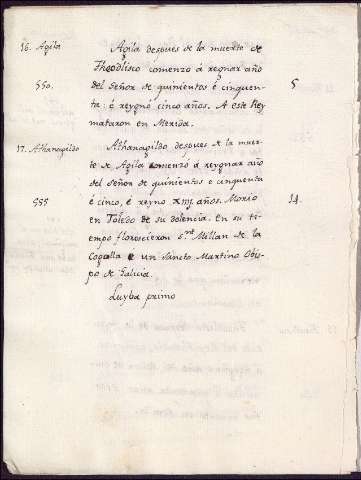 16. Agila
Agila despues de la muerte de
Theodisco comenzo á regnar año
550.
del Señor de quinientos é cinquen-
5
ta: é reygnó cinco años. A este Rey
mataron en Merida.
17. Athanagildo
Athanagildo despues de la muer-
te de Agila comenzó á reygnar año
del Señor de quinientos e cinquenta
555
é cinco, é reyno xiiij años. Morio
14.
en Toledo de su dolencia. En su ti-
empo florescieron Sant Millan de la
Cogalla e un Sancto Martino Obis-
po de Galicia.
Luyba primo